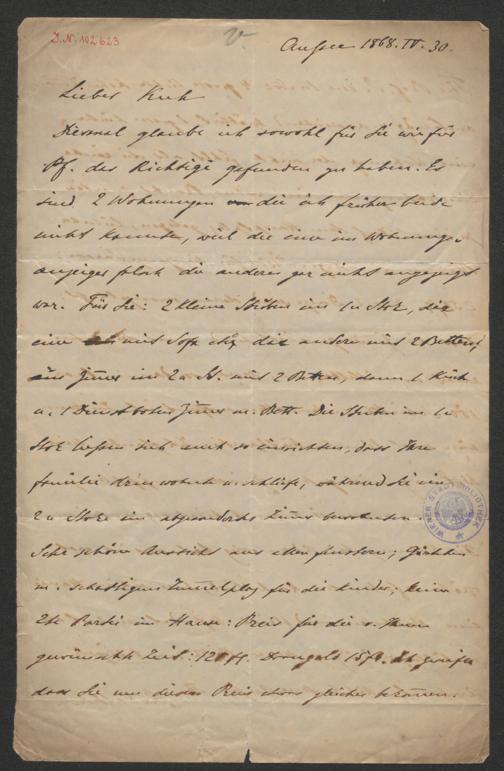 J.N. 102623
Aussee 1868. IV. 30.
Lieber Kuh
Diesmal glaube ich sowohl für Sie wie für
Pf. das Richtige gefunden zu haben. Es
sind 2 Wohnungen die ich früher beide
nicht kannte, weil die eine im Wohnungs-
anzeiger stach die andere gar nicht angezeigt
war. Für Sie: 2 kleine Stuben im 1n Stock, die
eine mit Sofa die andere mit 2 Betten,
ein Zimer im 2n St. mit 2 Betten, dann 1 Küche
u. 1 Dienstboten Zimer m. Bett. Die Stuben im 1n
Stock lassen sich auch so einrichten, dass Ihre
Familie drin wohnt u. schläft, während Sie im
2n Stocke ein abgesondertes Zimer
Sehr schöne Aussicht aus allen Fenstern; Gärtchen
m. schattigem Tummelplaz für die Kinder, keine
2te Partei im Hause: Preis für die v. Ihnen
gewünschte Zeit: 120 fl. 15 fl. Ich zweifle
dass Sie um diesen Preis etwas gleiches bekomen.
WIENER STADTBIBLIOTHEK